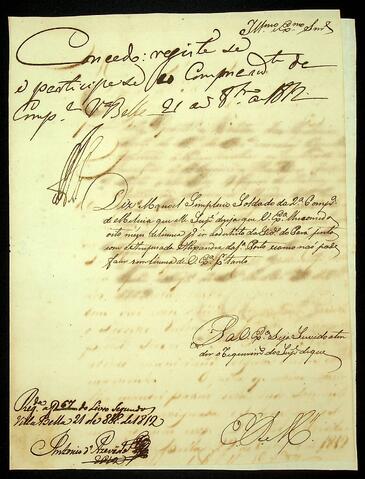 Ill.mo e Ex.mo Snr
Concedo: registe se
e participe se ao Comm.te de
Comp.a V.a Bella 21 de 8.bro de 1812
Diz Manoel Simplicio Soldado da 2.a Comp.a
de Milicia que elle Sup.e deseja que V. Ex.a lhe conceda
oito mezes de licença p.a ir a Cidade do Pará junto
com Alexandre da S.a Porto e como não pode
fazer sem licença de V. Ex.a p.r tanto
P. a V. Ex.a Seja Servido aten
der o requerim.to do Sup.e de que
E. R. M.
Reg.da a f 67 do Livro Segundo
Villa Bella 21 de 8br.o de 1812
Antonio d' Azevedo